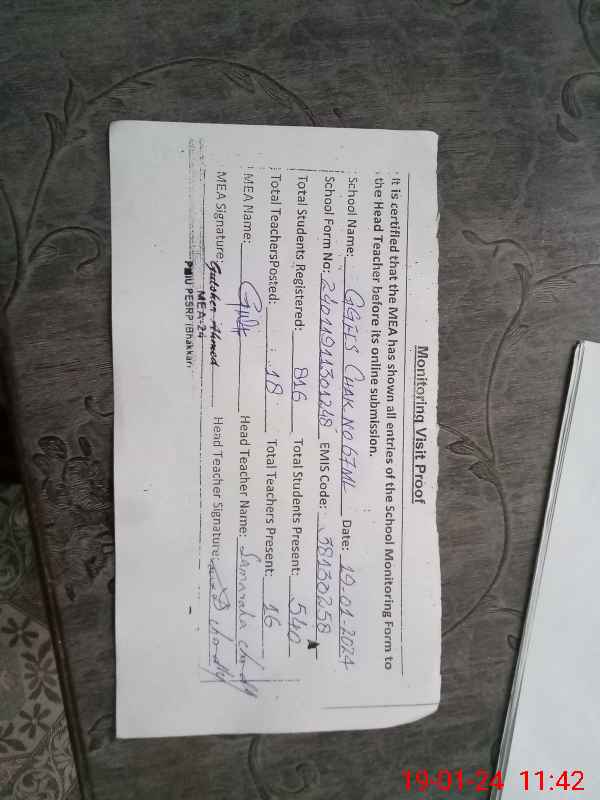 Monitoring Visit Proof
It is certified that the MEA has shown all entries of the School Monitoring Form to
the Head Teacher before its online submission.
School Name: GGHS Chak No 67ML Date: 19-01-2024
School Form No: EMIS Code: 38130258
Total Students Registered: 816 Total Students Present: 540
Total TeachersPosted: 18 Total Teachers Present: 16
MEA Name: Head Teacher Name:
MEA Signature: Gulsher Ahmed Head Teacher Signature:
MEA-24
PMIU PESRP (Bhakkar)
19-01-24 11:42